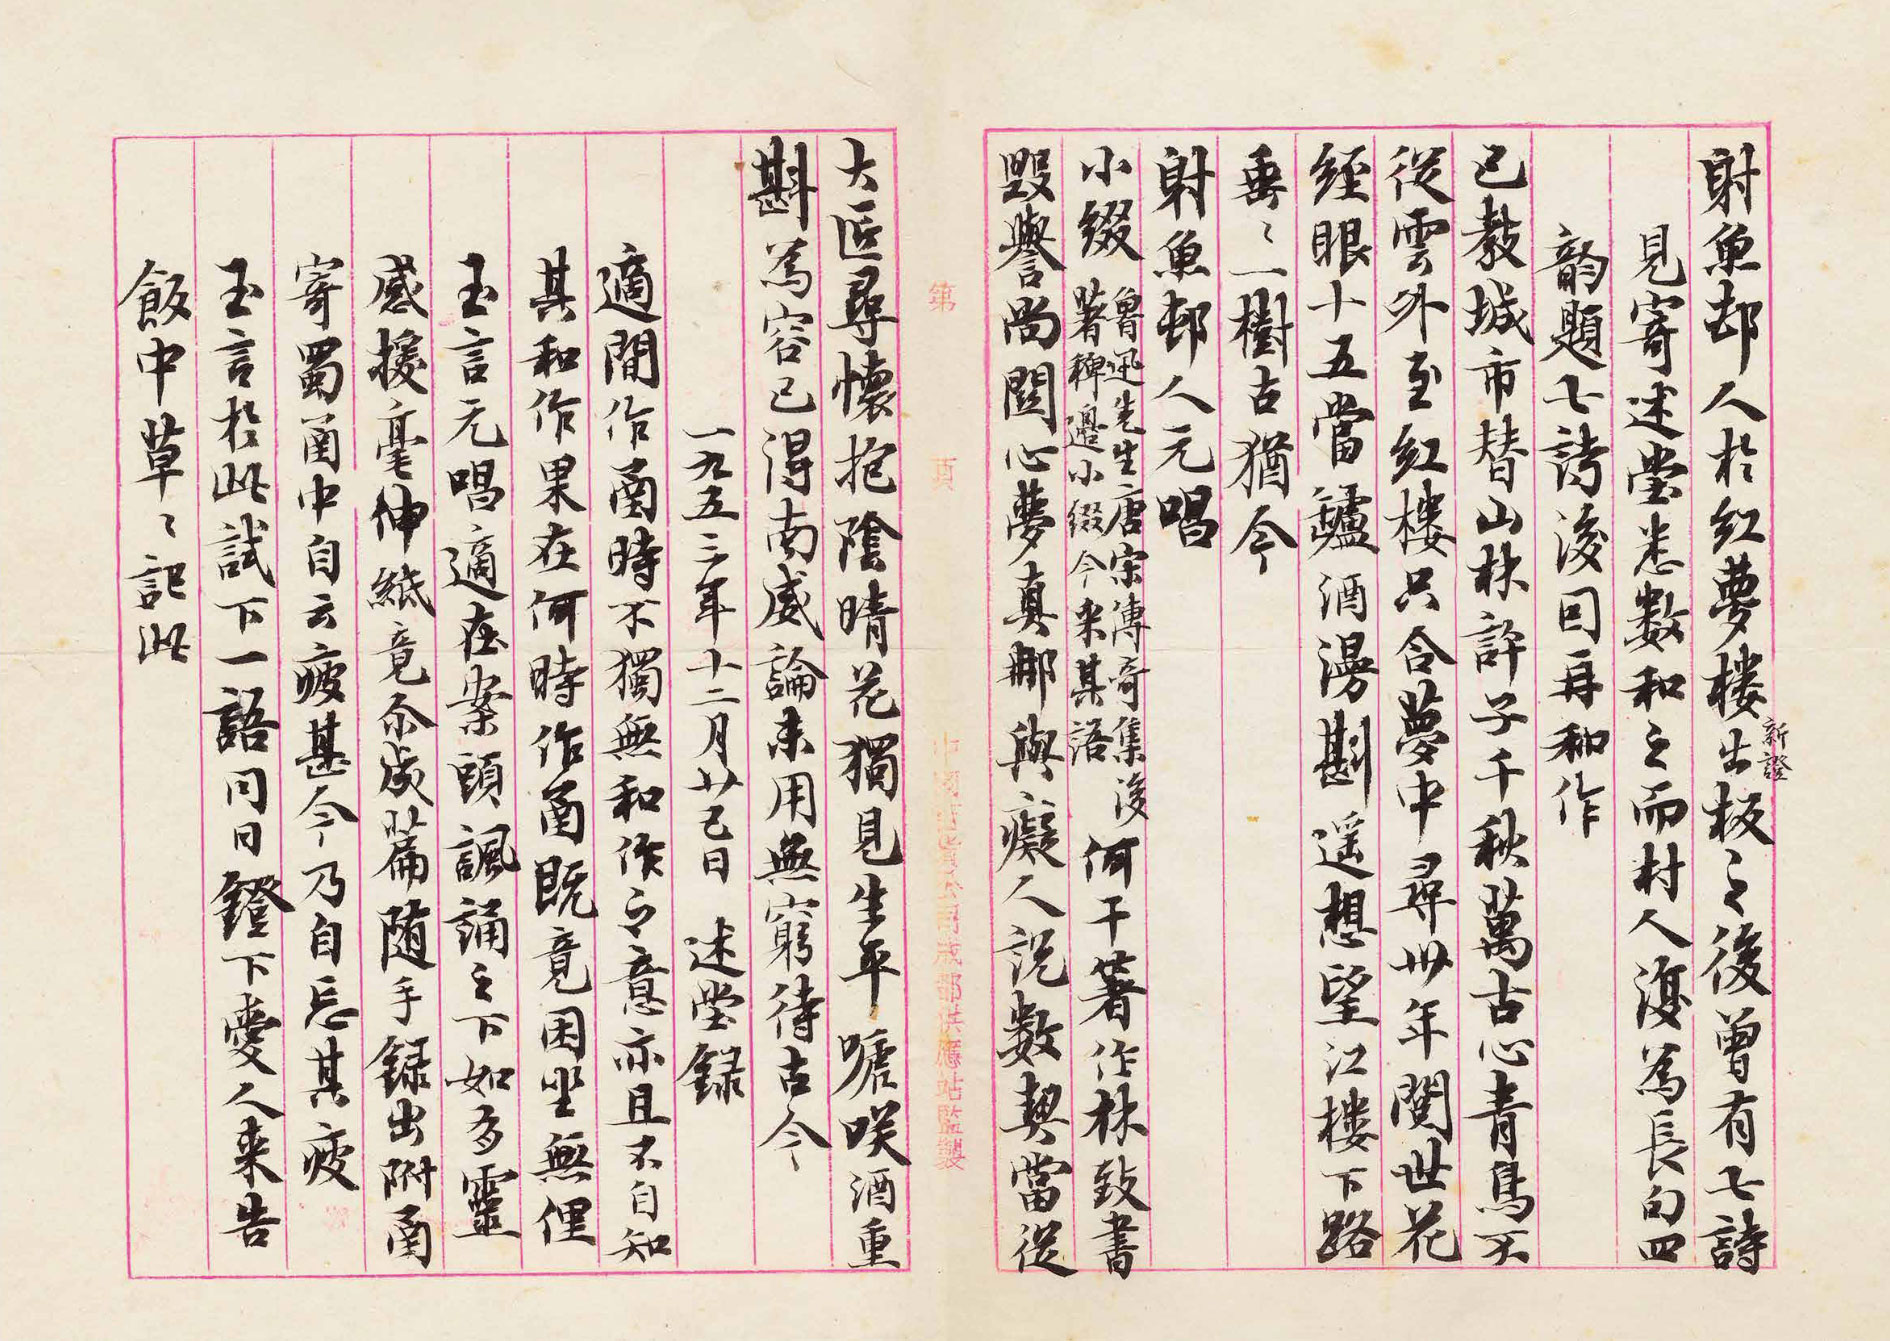 射魚邨人於紅夢樓新證出板之後曾有七詩
見寄述堂悉數和之而村人復為長句四
韵題七詩後回再和作
已教城市替山林許子千秋萬古心青鳥不
從雲外至紅樓只合夢中尋卅年閱世花
經眼十五當罏酒漫斟遥想望江樓下路
垂〻一樹古猶今
射魚邨人元唱
小綴魯迅先生唐宋傳奇集後著稗邊小綴今来某語何干著作林致書
毀譽尚関心夢真那與癡人説數契當從
大匠尋懷抱陰晴花獨見生平嚏咲酒重
斟為容已得南威論未用無窮待古今
一九五三年十二月廿七日 述堂録
適間作函時不獨無和作之意亦且不自知
其和作果在何時作函既竟困坐無俚
玉言元唱適在案頭諷誦之下如有靈
感援毫伸紙竟尒成篇随手録出附函
寄蜀函中自云疲甚今乃自忘其疲
玉言於此試下一語同日鐙下愛人来告
飯中草〻記此
第 頁